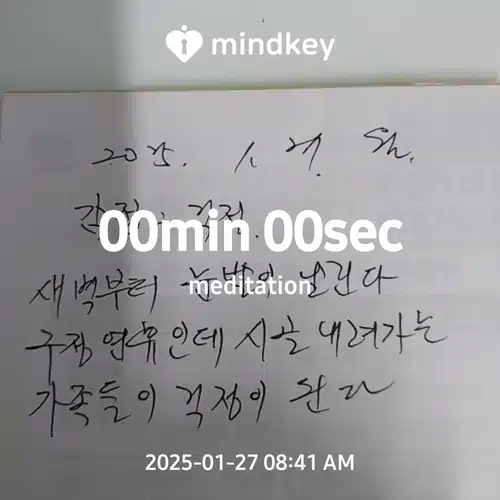 mindkey
2025. 1. 27. 월.
감정 : 걱정.
00min 00sec
새벽부터 눈발이 날린다
meditation
구정 연휴인데 시골 내려가는
가족들이 걱정이 된다
2025-01-27 08:41 AM